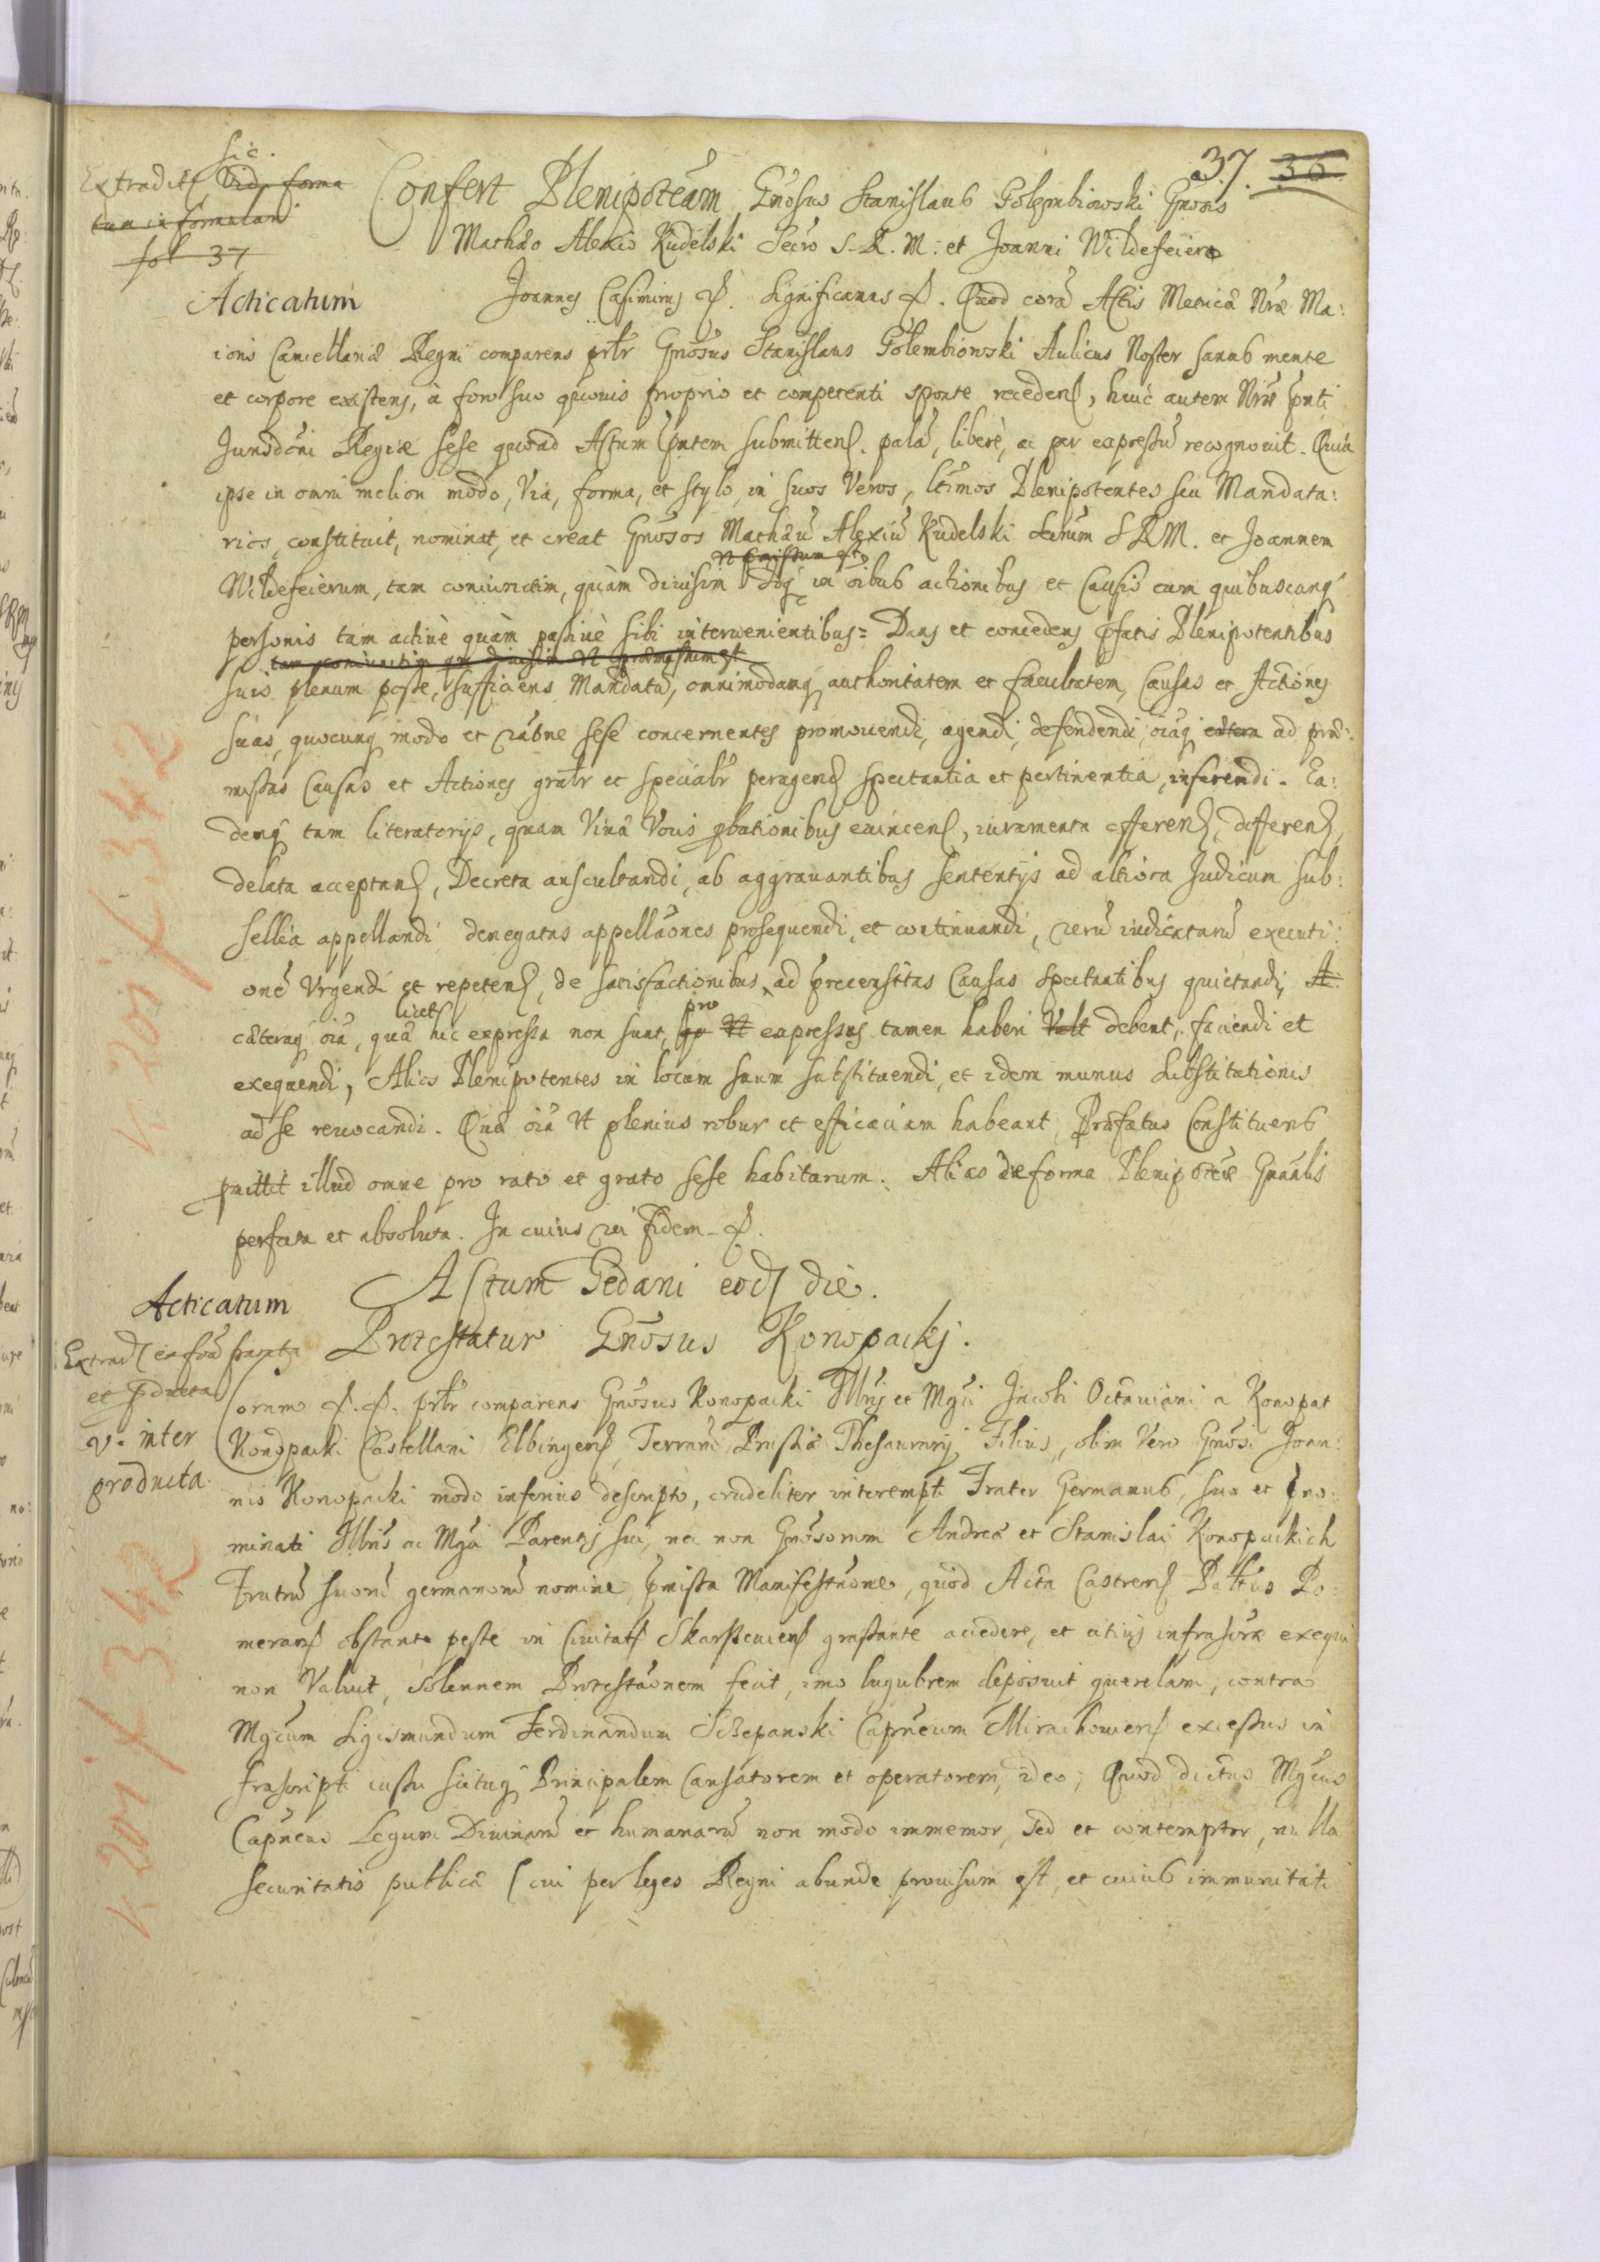 37. 36
sic.
Extradit Vide forma
tum informatam
fol 37
Confert Plenipoteãm Gnosus Stanislaus Golembiowski Gnosis
Mathæo Alexio Kudelski Secro S. R. M: et Joanni Wildefeiero
Acticatum
Joannes Casimirus &. Significamus &. Quod corã Actis Metricæ Nræ Ma:
ioris Cancellariæ Regni comparens prlr Gnosus Stanislaus Golembiowski Aulicus Noster sanus mente
et corpore existens, à foro suo quovis proprio et competenti sponte recedens, huic autem Nræ pnti
Jurisdcni Regiæ sese quoad Actum pntem submittens. palã, liberè, ac per expressũ recognovit. Quia
ipse in omni meliori modo, via, forma, et stylo, in suos Veros, ltimos Plenipotentes seu Mandata:
rios, constituit, nominat, et creat Gnosos Mathæũ Alexiũ Kudelski Secrum S R M. et Joannem
ut præmissum est
Wildefeierum, tam coniunctim, quàm divisim in oibus actionibus et Causis cum quibuscunq
personis tam activè quàm passivè sibi intervenientibus: Dans et concedens pfatis Plenipotentibus
tam coniunctim qm divisim ut præmissum est
suis plenum posse, sufficiens Mandatũ, omnimodamq authoritatem et facultatem, Causas et Actiones
suas, quocunq modo et rãone sese concernentes promovendi, agendi, defendendi, oiãq cætera ad præ:
missas Causas et Actiones gralr et specialr peragend spectantia et pertinentia, inferendi. Ea:
demq tam literatorijs, quam Vivæ Vocis pbationibus evincens, iuramenta offerend, defferend,
delata acceptand, Decreta auscultandi, ab aggravantibus sententijs ad altiora Judicum sub:
sellia appellandi denegatas appellãones prosequendi, et continuandi, rerũ iudicatarũ executi:
onẽ Urgendi et repetend, de satisfactionibus, ad precensitas Causas spectantibus quietandi,
licet pro
cæteraq oia, quæ hic expressa non sunt, expressis tamen haberi Valt debent, faciendi et
exequendi, Alios Plenipotentes in locum suum substituendi, et idem munus Substitutionis
ad se revocandi. Quæ oia Ut plenius robur et efficaciam habeant, Præfatus Constituens
pmittit illud omne pro rato et grato sese habiturum. Alias de forma Plenipotæ Gnralis
perfecta et absoluta. In cuius rei fidem &.
Actum Gedani eod die.
Acticatum
Protestatur Gnosus Konopackj.
Extrad
et pducta
v. inter
producta.
Coram &. &. prlr comparens Gnosus Konopacki Illris et Mgci Jacobi Octaviani a Konopat
Konopacki Castellani Elbingens, Terrarũ Prussiæ Thesaurarij Filius, olim Vero Gnosi Joan:
nis Konopacki modo inferius descripto, crudeliter interempti Frater Germanus, suo et pno:
minati Illris ac Mgci Parentis sui, nec non Gnosorum Andreæ et Stanislai Konopackich
Fratrũ suorũ germanorũ nomine, pmissa Manifestãone, quòd Acta Castrens Palttus Po:
merans obstante peste in Civitat Skarszeviens grassante accedere, et citius infrascrã exequi
non Valuit, solennem Protestãonem fecit, imo lugubrem deposuit querelam, contra
Mgcum Sigismundum Ferdinandum Sczepanski Capneum Mirachoviens excessus in
frascripti iussu suituq Principalem Causatorem et operatorem, ideo; Quod dictus Mgcus
Capneus Legum Divinarũ et humanarũ non modo immemor, sed et contemptor, nulla
securitatis publicæ (cui per leges Regni abunde provisum est, et cuius immunitati